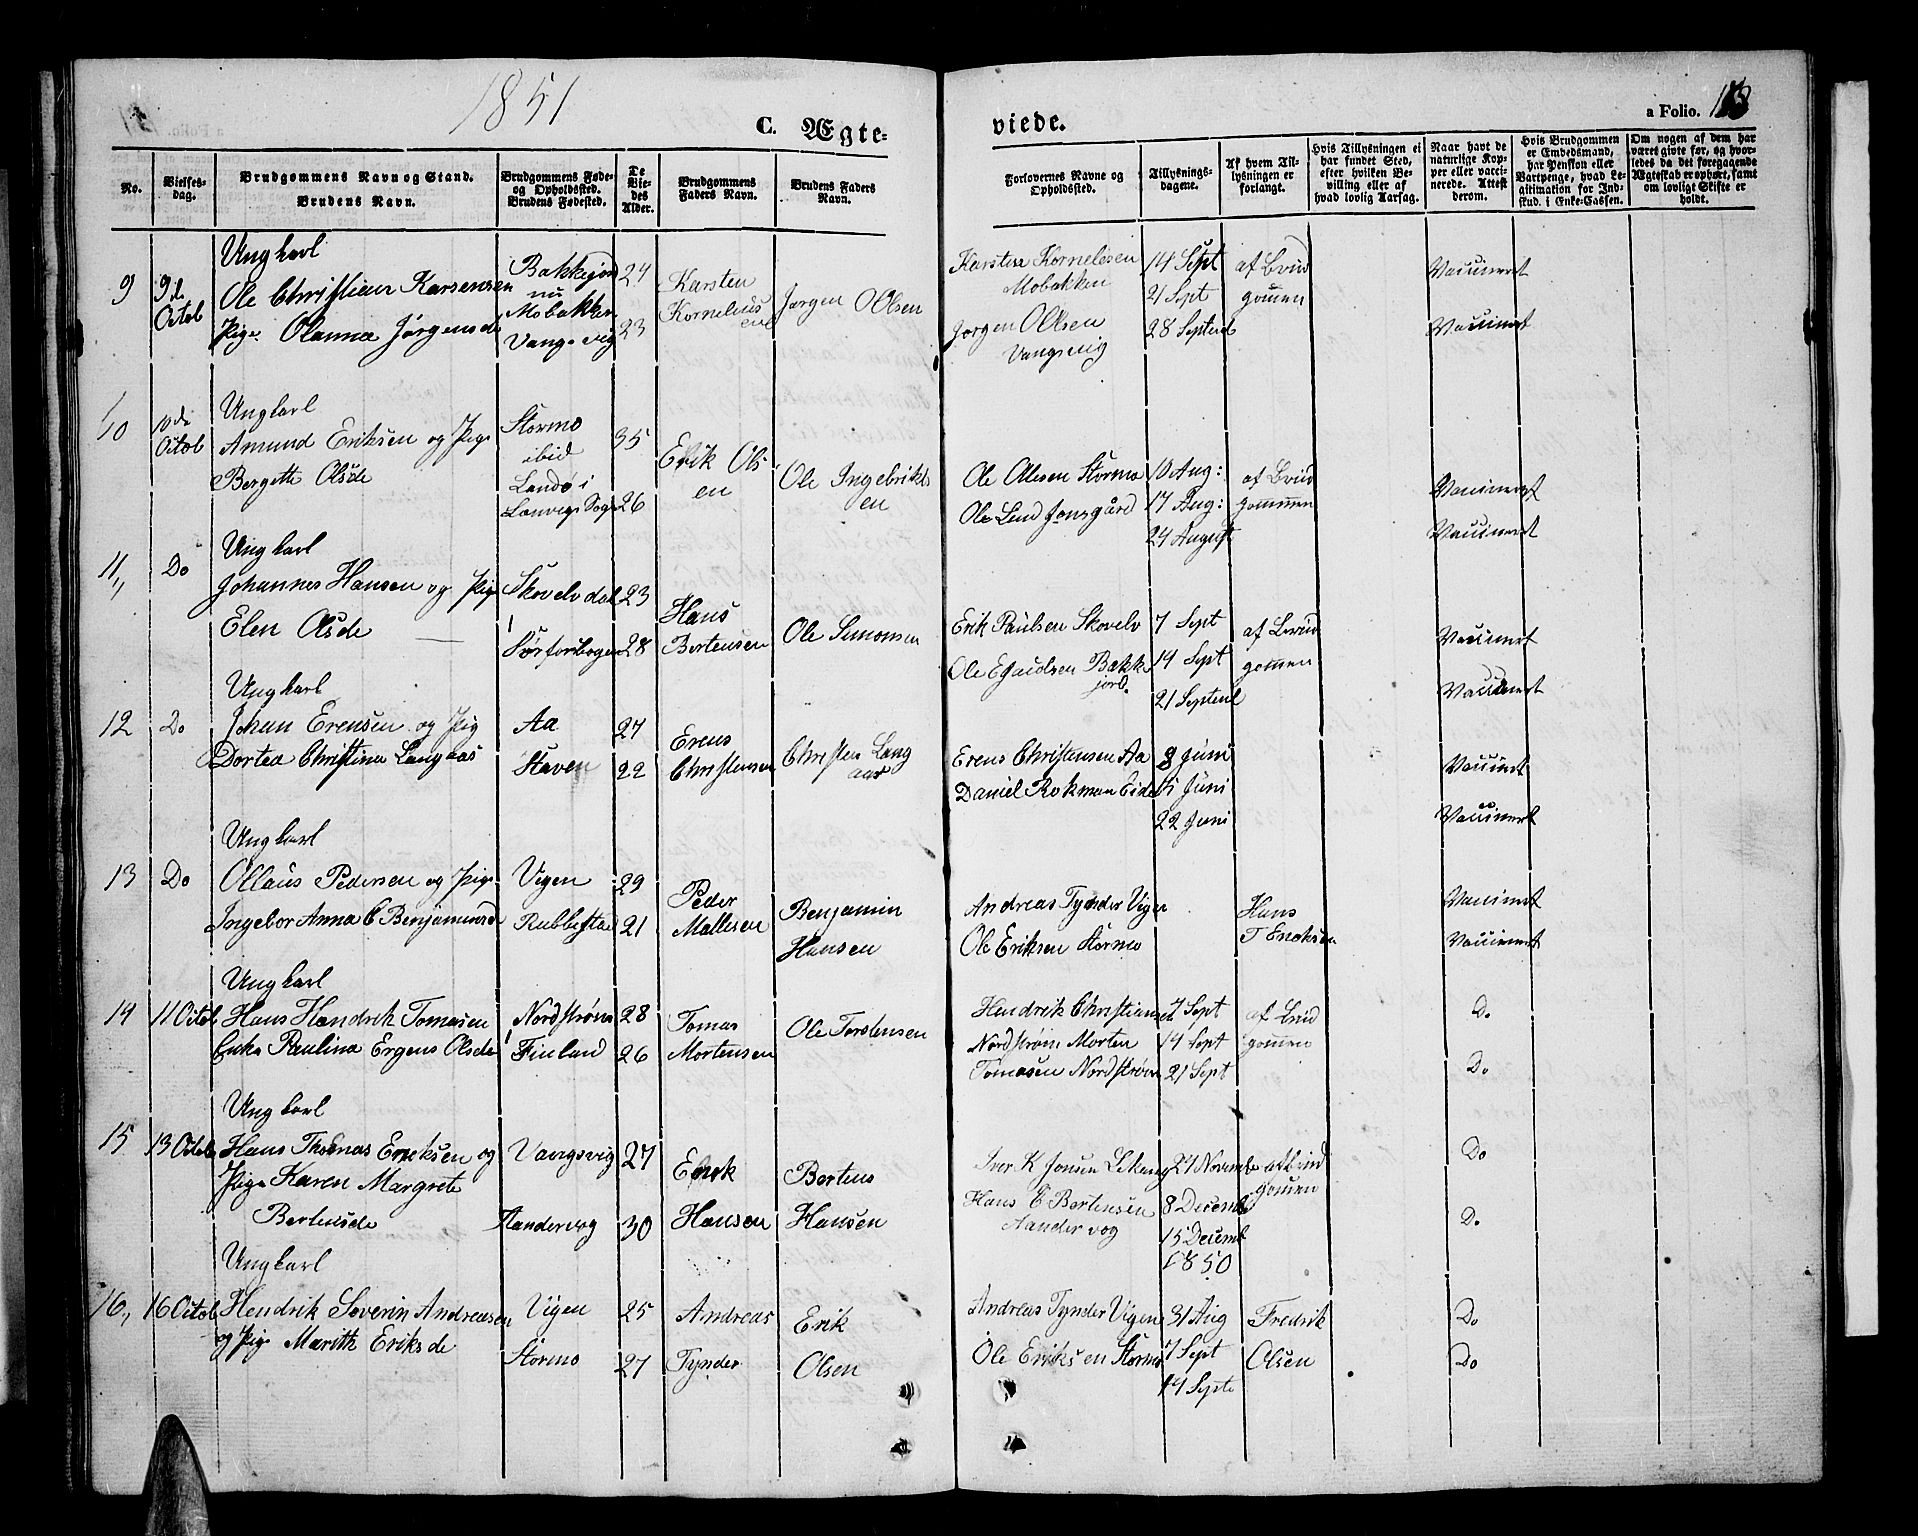 1851
C. Ægte=
viede.
a Folio. 113
No.
Vielses-
dag.
Brudgommens Navn og Stand.
Brudens Navn.
Brudgommens Føde-
og Opholdssted.
Brudens Fødested.
De
Vie-
des
Alder.
Brudgommens
Faders Navn.
Brudens Faders
Navn.
Forlovernes Navne og
Opholdssted.
Tillysnings-
dagene.
Af hvem Til-
lysningen er
forlangt.
Hvis Tillysningen ei
har fundet Sted,
efter hvilken Be-
villing eller af
hvad lovlig Aarsag.
Naar havt de
naturlige Kop-
per eller vacci-
nerede. Attest
derom.
Hvis Brudgommen
er Embedsmand,
har Pension eller
Vartpenge, hvad Le-
gitimation for Ind-
skud. i Enke-Cassen.
Om nogen af dem har
været givte før, og hvor-
ledes da det foregaaende
Ægteskab er ophørt, samt
om lovligt Skifte er
holdt.
9
9de
Octob
Ungkarl
Ole Christian Karsensen
Pige Olanna Jørgensde
Bakkejor
nu
Mobakken
Vangsvig
24
23
Karsten
Kornelius
en
Jørgen Olsen
Karsten Kornelesen
Mobakken
Jørgen Olsen
Vangsvig
14 Sept
21 Sept
28 Septemb
af Brud
gomen
Vaccinert
Vaccinert
10
10de
Octob
Ungkarl
Amund Eriksen og Pige
Bergette Olsde
Stormo
ibid
Landø i
Lenvigs Sogn
35
26
Erik Ols
en
Ole Ingebrikts
en
Ole Olesen Stormo
Ole Lind Jonsgård
10 Aug:
17 Aug:
24 August
af Brud
gommen
Vaccinert
Vaccinert
11
Do
Ungkarl
Johannes Hansen og Pige
Elen Olsde
Skovelvdal
Sørforbogen
23
28
Hans
Bertensen
Ole Simonsen
Erik Paulsen Skovelv
Ole Egaudsen Bakk
jord
7 Sept
14 Sept
21 Septemb
af Brud
gomen
Vaccinert
Vaccinert
12
Do
Ungkarl
Johan Erensen og Pig
Dortea Christina Langaas
Aa
Staven
27
22
Erens
Christensen
Christen Lang
aas
Erens Christensen Aa
Daniel Rokman Eide
8 Juni
15 Juni
22 Juni
Vaccinert
Vaccinert
13
Do
Ungkarl
Ollaus Pedersen og Pige
Ingebor Anna C Benjaminsd
Vigen
Rubbestad
29
21
Peder
Mallesen
Benjamin
Hansen
Andreas Tynder Vigen
Ole Eriksen Stormo
Hans
T Enoksen
Vaccinert
Vaccinert
14
11 Octob
Ungkarl
Hans Hendrik Tomasen
Enke Paulina Ergens Olsde
Nordstrøm
Finland
28
26
Tomas
Mortensen
Ole Torstensen
Hendrik Christiansen
Nordstrøm Morten
Tomasen Nordstrøm
7 Sept
14 Sept
21 Sept
af Brud
gomen
Do
Do
15
13 Octob
Ungkarl
Hans Thomas Eneksen og
Pige Karen Margrete
Bertensde
Vangsvig
Aandervog
27
30
Enok
Hansen
Bertens
Hansen
Iver K Jonsen Lekang
Hans E Bertensen
Aandervog
27 Novembe
8 Decemb
15 Decemb
1850
af brud
gomen
Do
Do
16
16 Octob
Ungkarl
Hendrik Severin Andreasen
og Pige Marith Eriksde
Vigen
Stormo
25
27
Andreas
Tynder
Erik
Olsen
Andreas Tynder Vigen
Ole Eriksen Stormo
31 Aug
7 Sept
14 Septe
Fredrik
Olsen
Do
Do